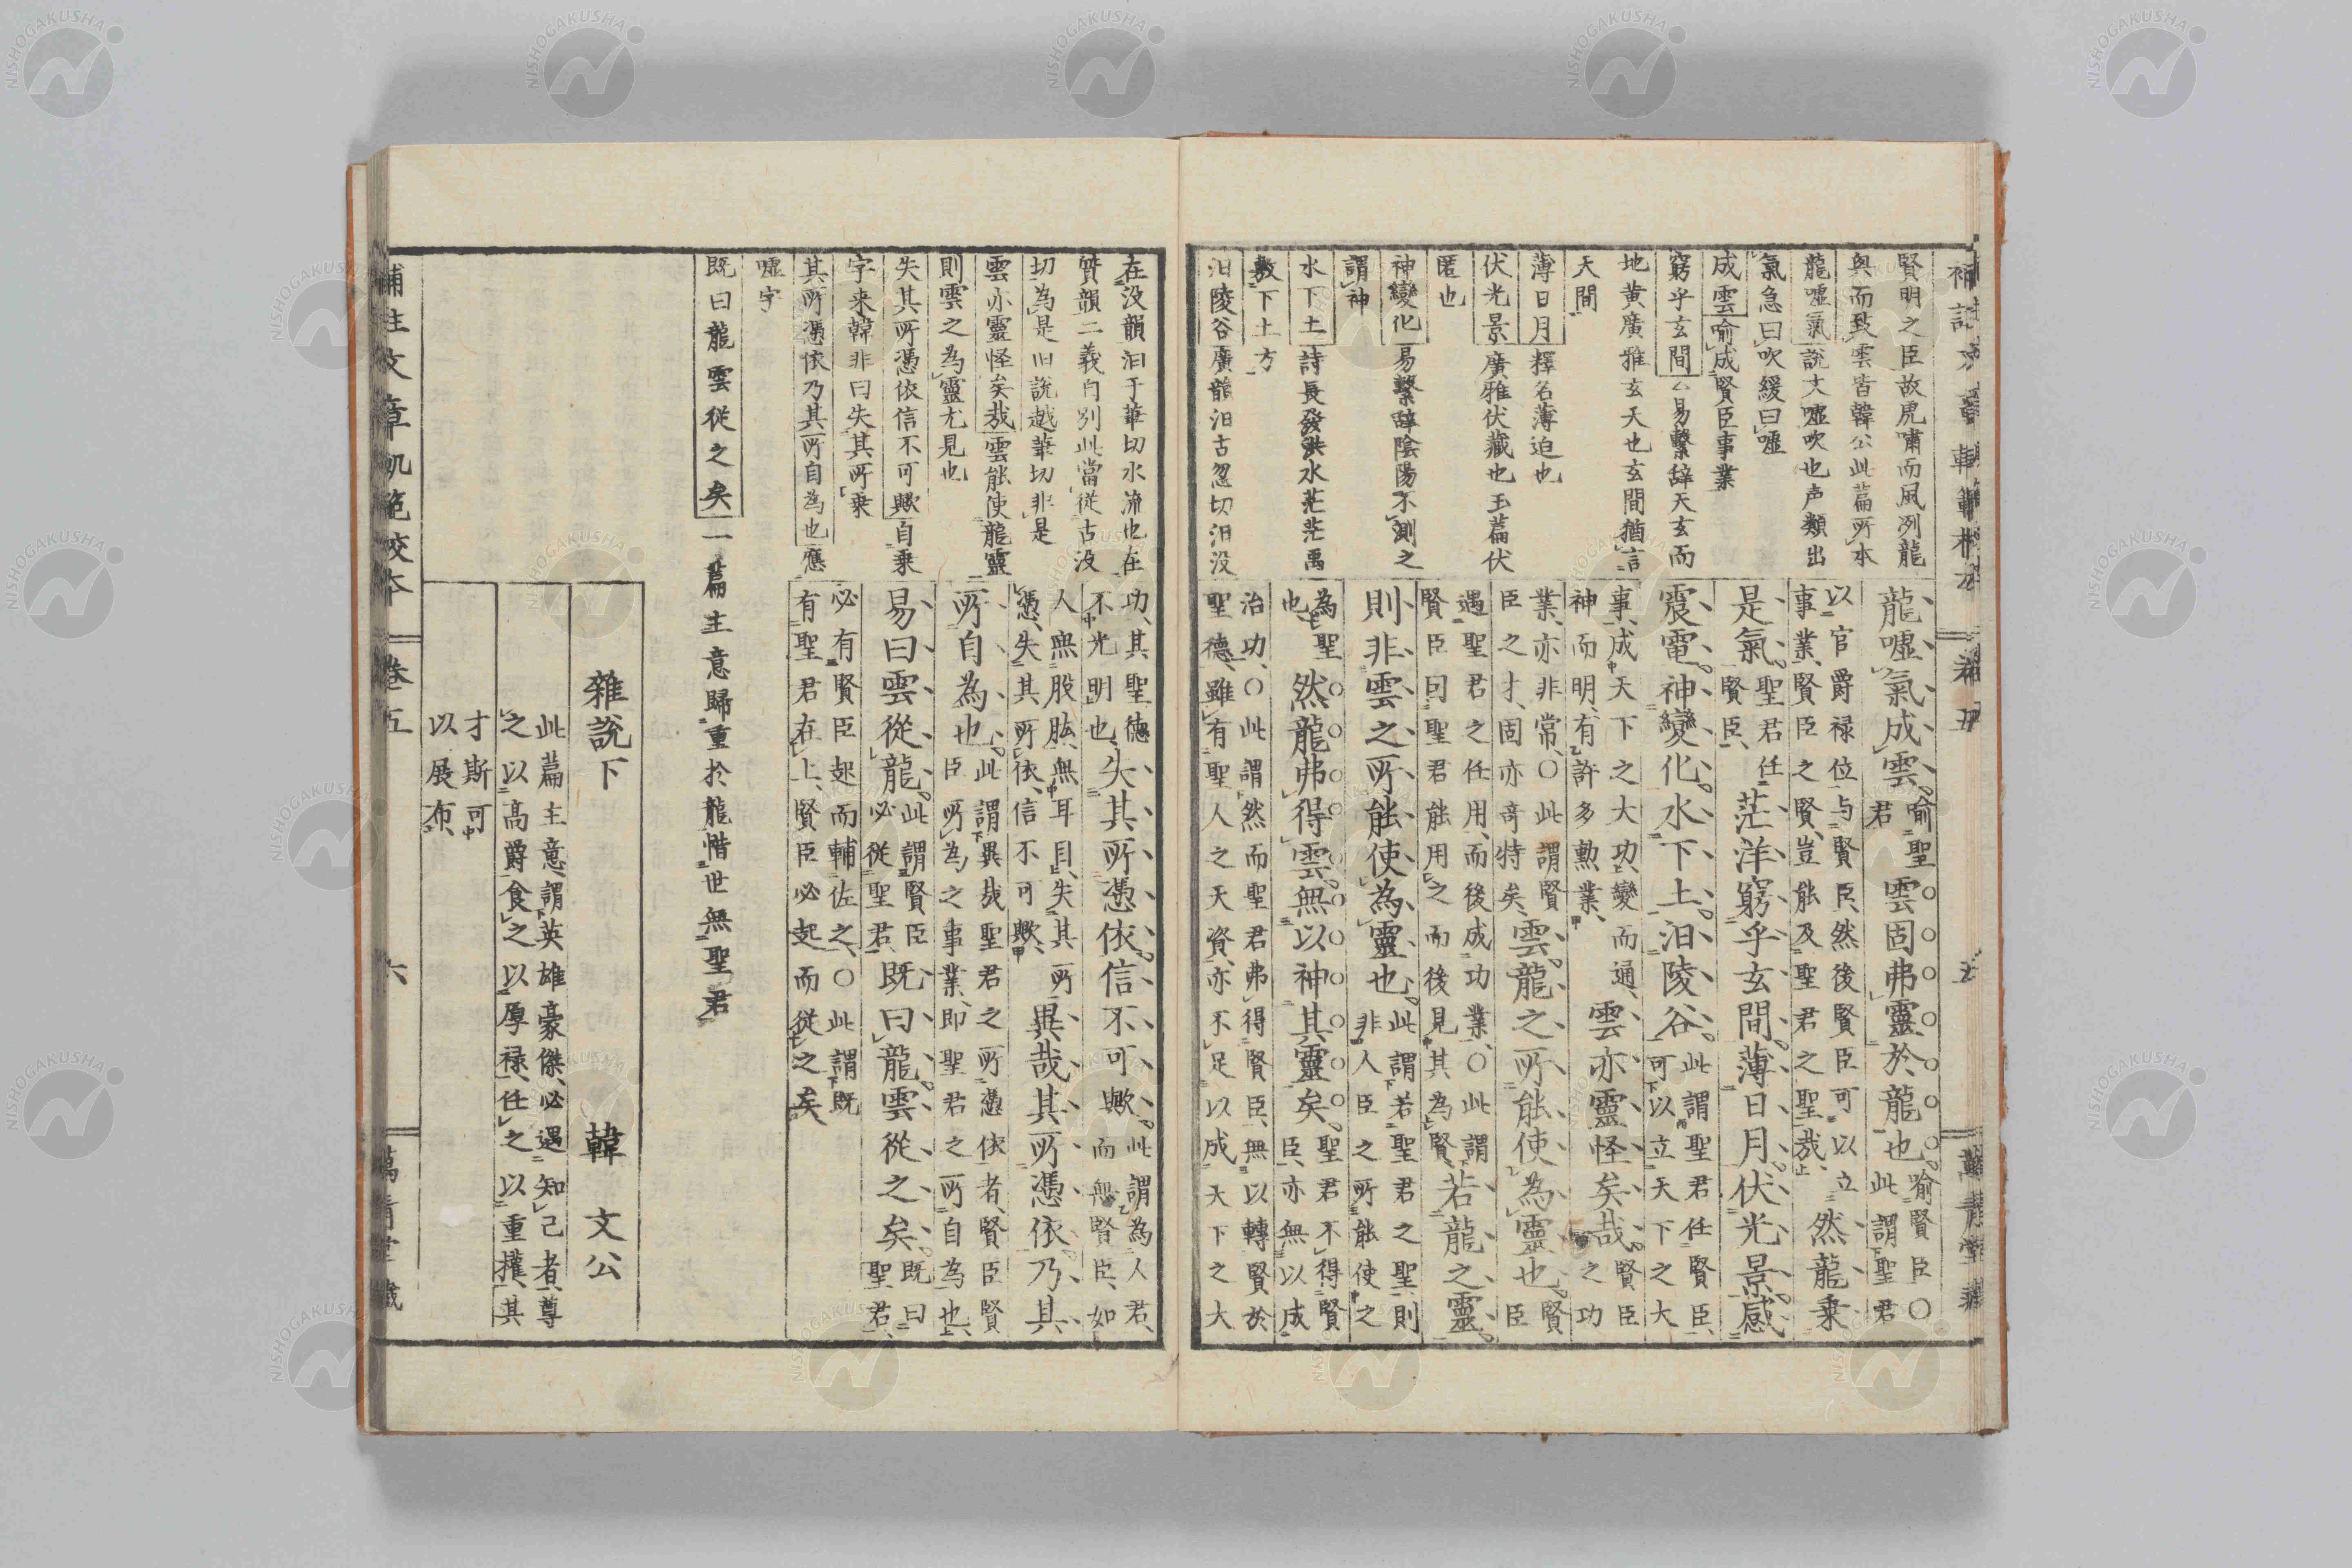 賢明之臣故虎嘯而風冽龍
與而致雲皆韓公此篇所本
龍噓氣說文噓吹也声類出
氣急曰吹緩曰噓
成雲喻成賢臣事業
窮乎玄間易繫辞天玄而
地黄廣雅玄天也玄間猶言
天間
薄日月釋名薄迫也
伏光景廣雅伏藏也玉篇伏
匿也
神變化易繫辞陰陽不測之
謂神
水下土詩長發洪水茫茫禹
敷下土方
汩陵谷廣韻汩古忽切汩没
龍噓氣成雲喻聖君雲固弗靈於龍也喻賢臣○此謂聖君
以官爵禄位与賢臣然後賢臣可以立
事業賢臣之賢豈能及聖君之聖哉然龍乗
是氣聖君任賢臣茫洋窮乎玄間薄日月伏光景感
震電神變化水下土汩陵谷此謂聖君任賢臣可以立天下之大
事成天下之大功變而通
神而明有許多勲業雲亦靈怪矣哉賢臣之功
業亦非常○此謂賢
臣之才固亦奇特矣雲龍之所能使為靈也賢臣
遇聖君之任用而後成功業○此謂
賢臣曰聖君能用之而後見其為賢若龍之靈
則非雲之所能使為靈也此謂若聖君之聖則非人臣之所能使之
為聖也然龍弗得雲無以神其靈矣聖君不得賢臣亦無以成
治功○此謂然而聖君弗得賢臣無以轉賢於
聖德雖有聖人之天資亦不足以成天下之大
在没韻汩于筆切水流也在
質韻二義自別此當從古没
切為是旧説越筆切非是
雲亦靈怪矣哉雲能使龍靈
則雲之為靈尤見也
失其所憑依信不可歟自乗
字来韓非曰失其所乗
其所憑依乃其所自為也應
噓字
既曰龍雲從之矣一篇主意歸重於龍惜世無聖君
功其聖德
不光明也失其所憑依信不可歟此謂為人君而無賢臣如
人無股肱無耳目失其所
憑失其所依信不可歟異哉其所憑依乃其
所自為也此謂異哉聖君之所憑依者賢臣賢
臣所為之事業即聖君之所自為也
易曰雲從龍此謂賢臣必從聖君既曰龍雲從之矣既曰聖君
必有賢臣起而輔佐之○此謂既
有聖君在上賢臣必起而從之矣
雜說下 韓文公
此篇主意謂英雄豪傑必遇知己者尊
之以高爵食之以厚禄任之以重權其
才斯可
以展布
補註文章軌範校本 卷五 六